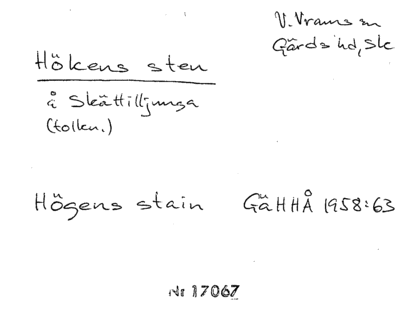 V. Vrams sn
Gärds hd, Sk
Hökens sten
å Skättilljunga
(tolkn.)
Högens stain GäHHÅ 1958:63
Nr 17067